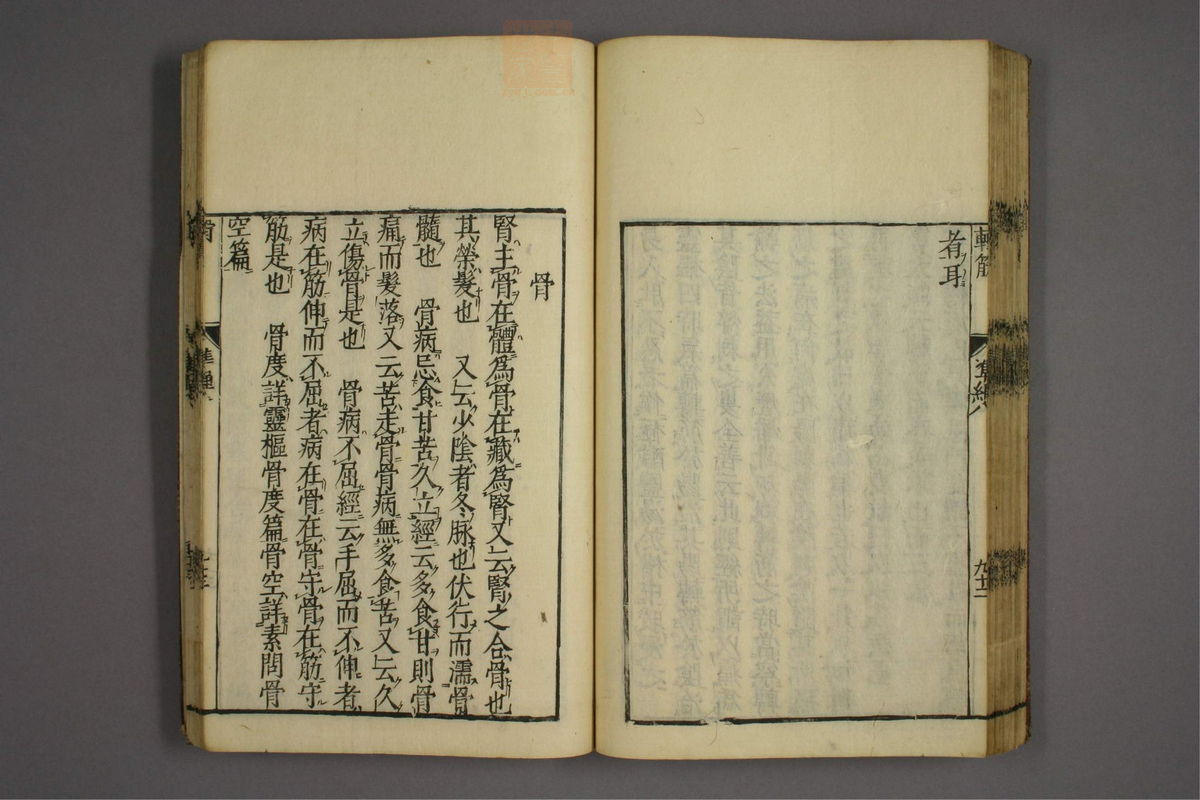 轉筋
九十二
者耳
骨
腎主骨在體爲骨在藏爲腎又云腎之合骨也
其榮髮也　又云少陰者冬脉也伏行而濡骨
髓也　骨病忌食甘苦久立經云多食甘則骨
痛而髮落又云苦走骨骨病無多食苦又云久
立傷骨是也　骨病不屈經云手屈而不伸者
病在筋伸而不屈者病在骨在骨守骨在筋守
筋是也　骨度詳靈樞骨度篇骨空詳素問骨
空篇
骨